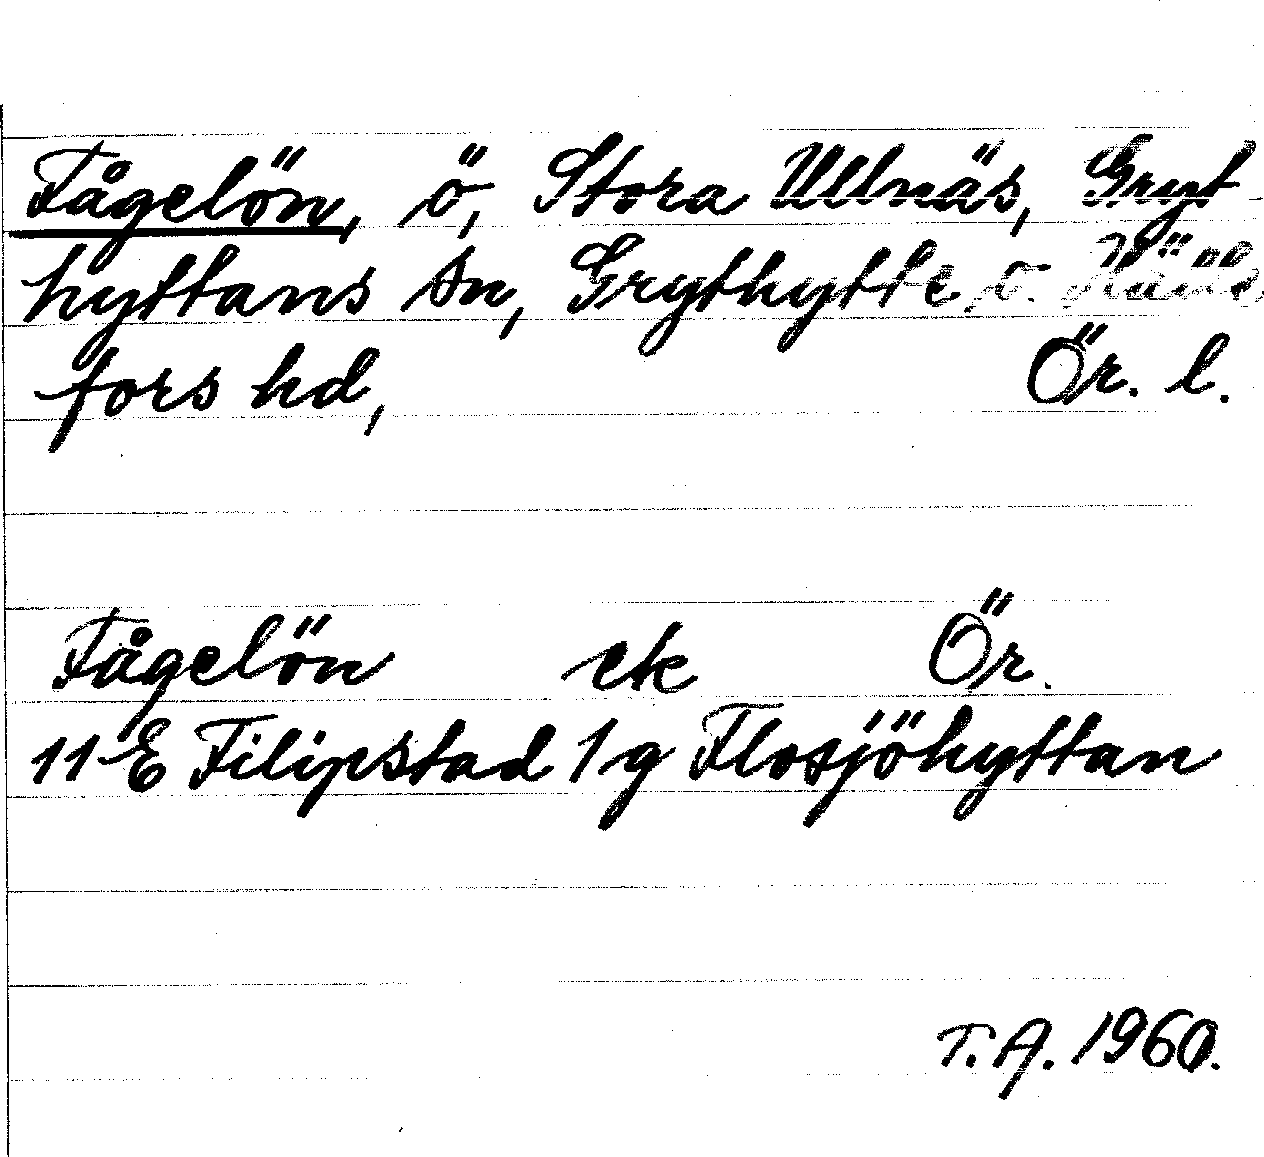 Fågelön, ö, Stora Ullnäs, Gryt-
hyttans sn, Grythytte o. Hälle-
fors hd, Ör. l.
Fågelön ek Ör.
11 E Filipstad 1 g Flosjöhyttan
T.A. 1960.